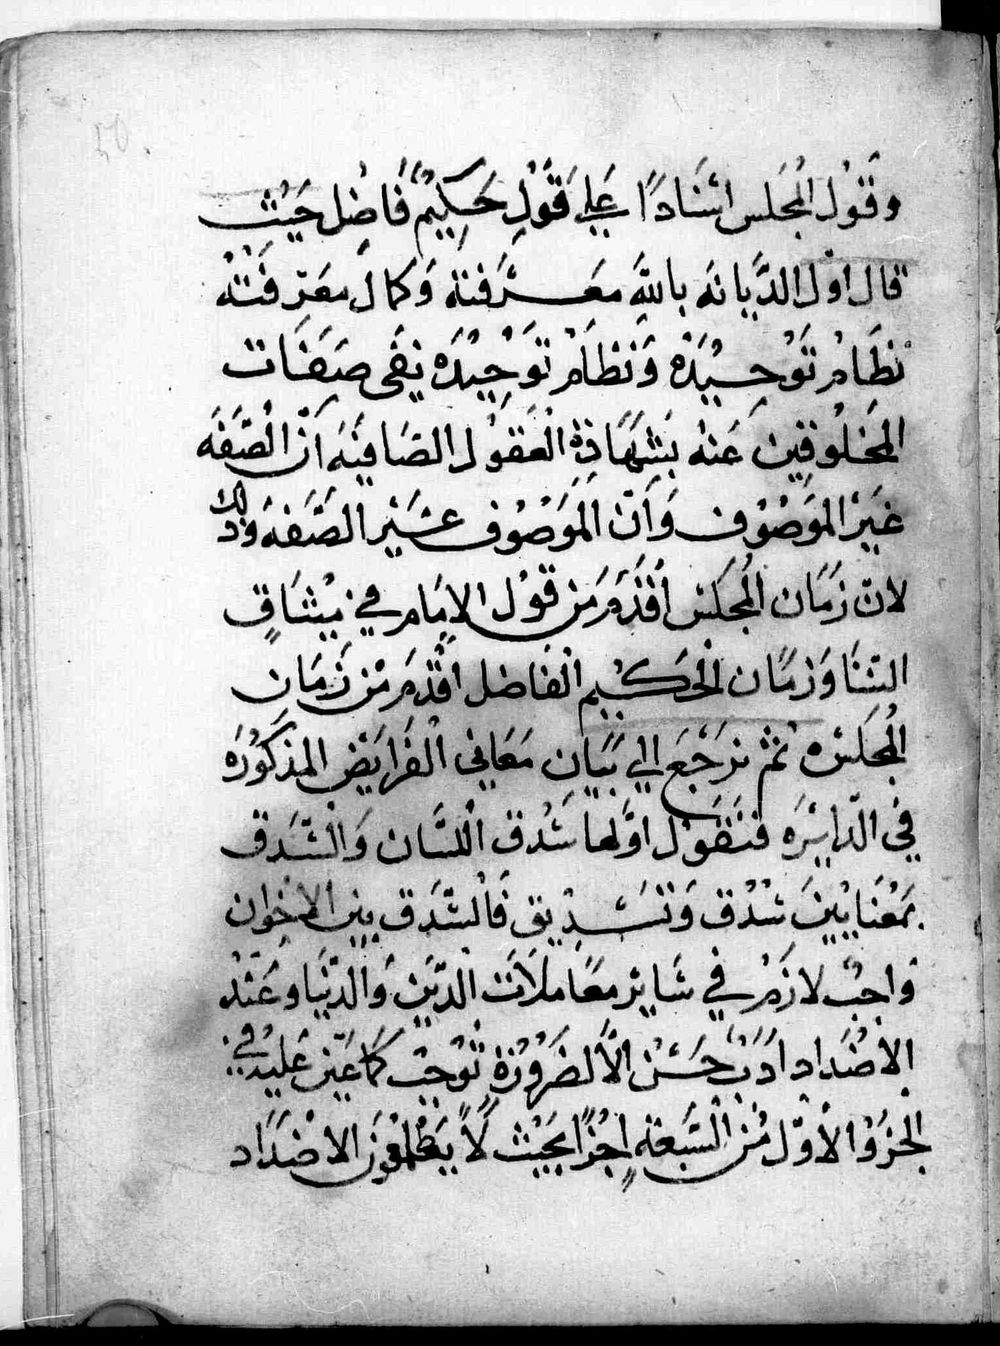 وقول المجلس اسنادًا علي قول حكيم فاضل حيث
قال اول الديانه بالله معرفته وكمال معرفته
نظام توحيده ونظام توحيده نفى صفات
المخلوقين عنه بشهادة العقول الصافيه ان الصفه
غير الموصوف وان الموصوف غير الصفه وذلك
لان زمان المجلس أقدم من قول الامام في ميثاق
النسا وزمان الحكيم الفاضل اقدم من زمان
المجلس ثم نرجع الي بيان معاني الفرايض المذكوره
في الدايره فنقول اولها سدق اللسان والسدق
بمعنايين سدق وتسديق فالسدق بين الاخوان
واجب لازم في ساير معاملات الدين والدنيا وعند
الأضداد ادب حسن الا لضرورة توجب كما عين عليه في
الجزو الأول من السبعة اجزا بحيث لا يطلعون الاضداد